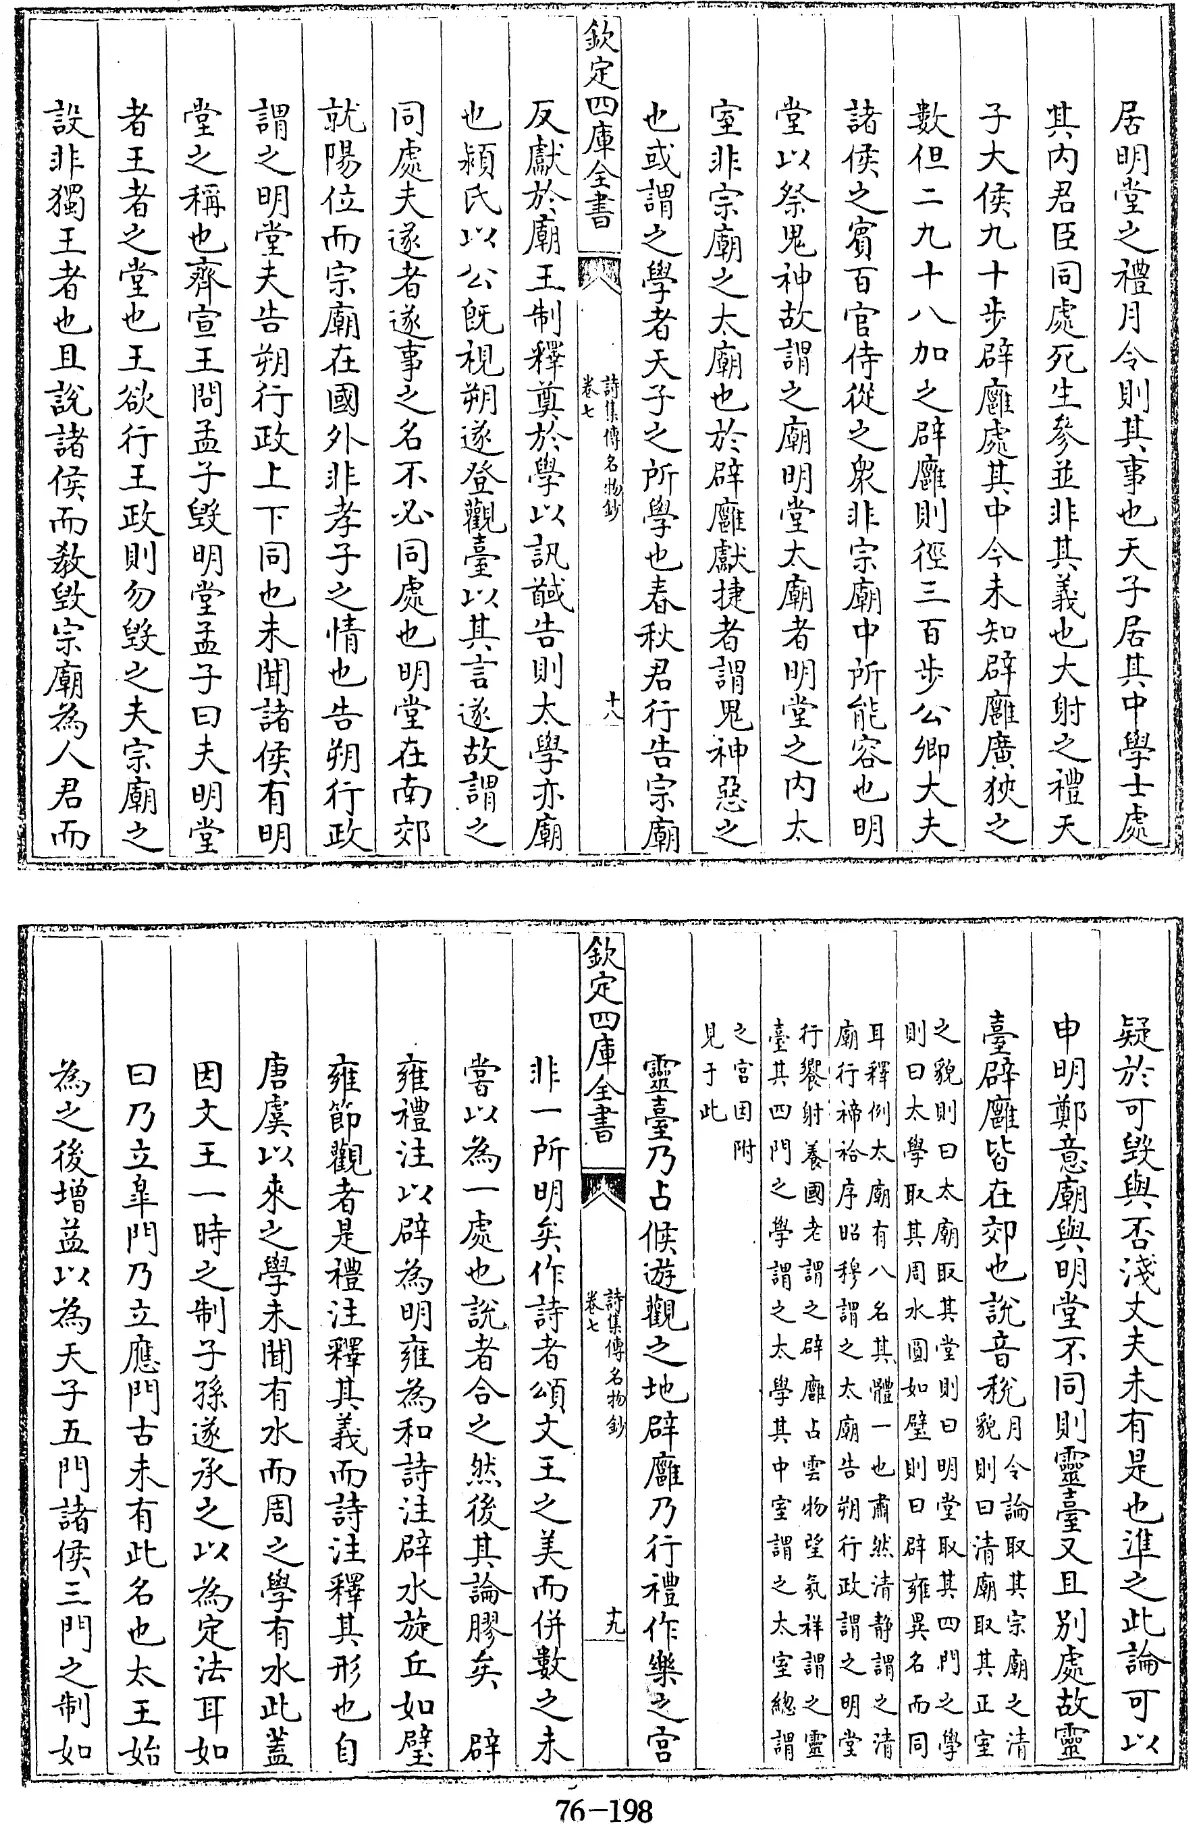 居明堂之禮月令則其事也天子居其中學士處
其内君臣同處死生參並非其義也大射之禮天
子大侯九十步辟廱處其中今未知辟廱廣狹之
數但二九十八加之辟廱則徑三百步公卿大夫
諸侯之賓百官侍從之衆非宗廟中所能容也明
堂以祭鬼神故謂之廟明堂太廟者明堂之内太
室非宗廟之太廟也於辟廱獻捷者謂鬼神惡之
也或謂之學者天子之所學也春秋君行告宗廟
欽定四庫全書
詩集傳名物鈔
卷七
十八
反獻於廟王制釋奠於學以訊馘告則太學亦廟
也穎氏以公既視朔遂登觀臺以其言遂故謂之
同處夫遂者遂事之名不必同處也明堂在南郊
就陽位而宗廟在國外非孝子之情也告朔行政
謂之明堂夫告朔行政上下同也未聞諸侯有明
堂之稱也齊宣王問孟子毁明堂孟子曰夫明堂
者王者之堂也王欲行王政則勿毁之夫宗廟之
設非獨王者也且說諸侯而教毁宗廟為人君而
疑於可毁與否淺丈夫未有是也準之此論可以
申明鄭意廟與明堂不同則靈臺又且别處故靈
臺辟廱皆在郊也說音稅月令論取其宗廟之清
貌則曰清廟取其正室
之貌則曰太廟取其堂則曰明堂取其四門之學
則曰太學取其周水圓如璧則曰辟雍異名而同
耳釋例太廟有八名其體一也肅然清静謂之清
廟行禘祫序昭穆謂之太廟告朔行政謂之明堂
行饗射養國老謂之辟廱占雲物望氣祥謂之靈
臺其四門之學謂之太學其中室謂之太室總謂
之宫因附
見于此
靈臺乃占候遊觀之地辟廱乃行禮作樂之宫
欽定四庫全書
詩集傳名物鈔
卷七
十九
非一所明矣作詩者頌文王之美而併數之未
嘗以為一處也說者合之然後其論膠矣 辟
雍禮注以辟為明雍為和詩注辟水旋丘如璧
雍節觀者是禮注釋其義而詩注釋其形也自
唐虞以來之學未聞有水而周之學有水此蓋
因文王一時之制子孫遂承之以為定法耳如
曰乃立臯門乃立應門古未有此名也太王始
為之後增益以為天子五門諸侯三門之制如
76-198